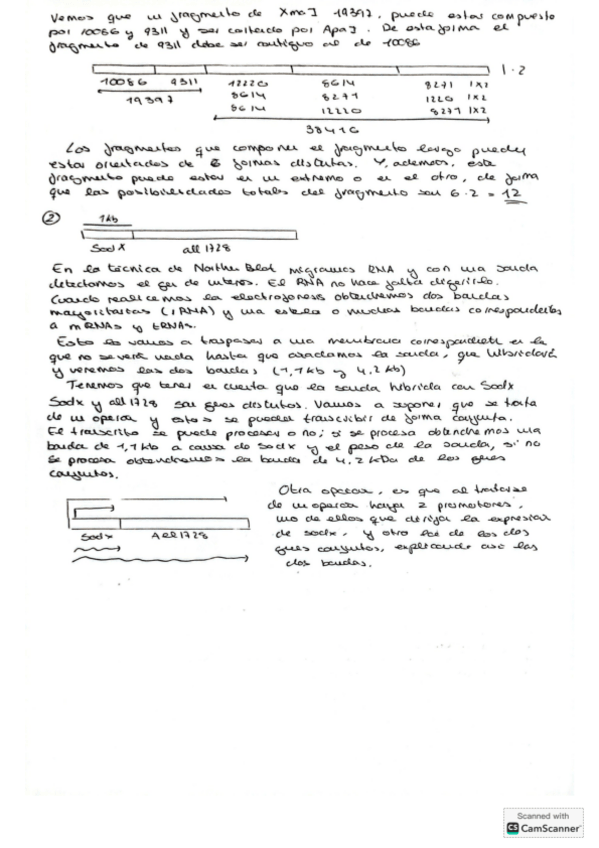 Vemos que un fragmento de XmaI 19397, puede estar compuesto
por 10086 y 9311 y ser cortado por ApaI. De esta forma el
fragmento de 9311 debe ser contiguo al de 10086
1·2
10086 9311 12220 8614 8271 1x2
19397 8614 8271 1220 1x2
8614 12220 8271 1x2
38416
Los fragmentos que componen el fragmento largo pueden
estar orientados de 6 formas distintas. Y, además, este
fragmento puede estar en un extremo o en el otro, de forma
que las posibilidades totales del fragmento son 6·2 = 12
2
1kb
SodX all1728
En la técnica de Northern Blot migramos RNA y con una sonda
detectamos el gen de interés. El RNA no hace falta digerirlo.
Cuando realicemos la electroforesis obtendremos dos bandas
mayoritarias (rRNA) y una estela o muchas bandas correspondientes
a mRNAs y tRNAs.
Esto lo vamos a traspasar a una membrana correspondiente en la
que no se verá nada hasta que añadamos la sonda, que hibridará
y veremos las dos bandas (1,1kb y 4.2kb)
Tenemos que tener en cuenta que la sonda hibrida con Sodx
Sodx y all1728 son genes distintos. Vamos a suponer que se trata
de un operón y estos se pueden transcribir de forma conjunta.
El transcrito se puede procesar o no; si se procesa obtendremos una
banda de 1,1kb a causa de Sodx y el peso de la sonda, si no
se procesa obtendremos la banda de 4,2kDa de los genes
conjuntos.
Otra opción, es que al tratarse
de un operón haya 2 promotores,
uno de ellos que dirija la expresión
de sodx, y otro de los dos
genes conjuntos, explicando así las
dos bandas.
Sodx All1728
Scanned with
CS CamScanner